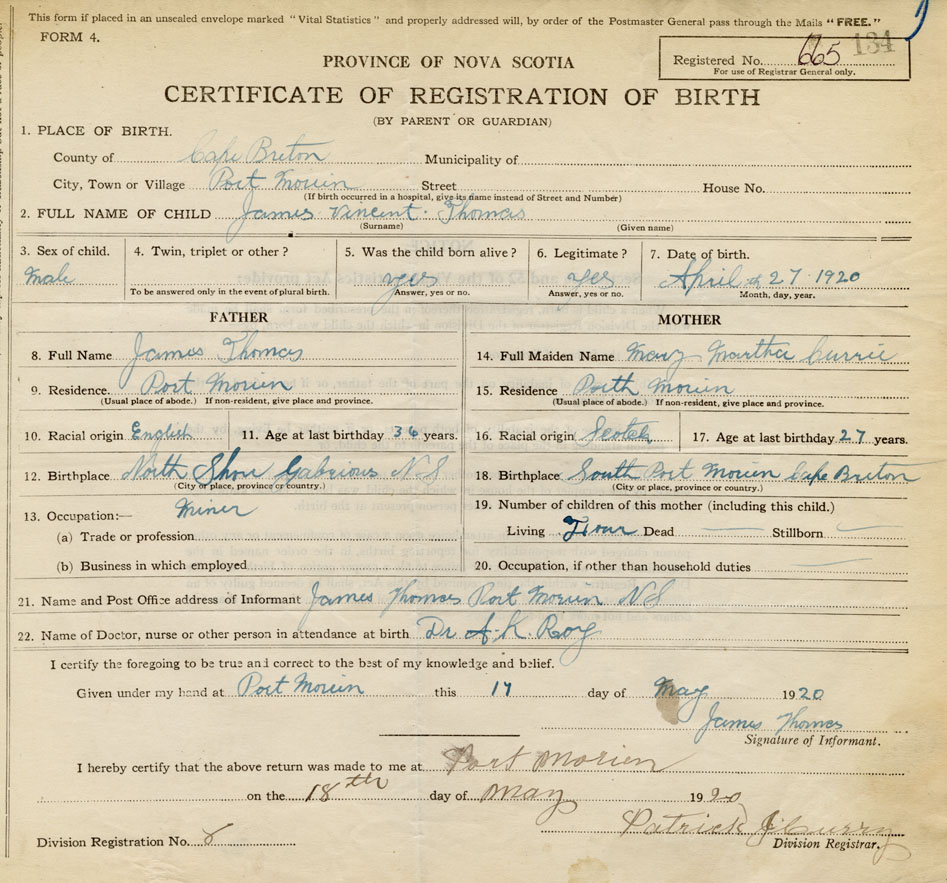 This form if placed in an unsealed envelope marked "Vital Statistics" and properly addressed will, by order of the Postmaster General pass through the Mails "FREE."
FORM 4.
Registered No. 665 134
For use of Registrar General only.
PROVINCE OF NOVA SCOTIA
CERTIFICATE OF REGISTRATION OF BIRTH
(BY PARENT OR GUARDIAN)
1. PLACE OF BIRTH.
County of Cape Breton Municipality of
City, Town or Village Port Morien Street House No.
(If birth occurred in a hospital, give its name instead of Street and Number)
2. FULL NAME OF CHILD James Vincent Thomas
(Surname) (Given name)
3. Sex of child. 4. Twin, triplet or other? 5. Was the child born alive? 6. Legitimate? 7. Date of birth.
Male yes yes April 27 1920
To be answered only in the event of plural birth. Answer, yes or no. Answer, yes or no. Month, day, year.
FATHER MOTHER
8. Full Name James Thomas 14. Full Maiden Name Mary Martha Currie
9. Residence. Port Morien 15. Residence Porth Morien
(Usual place of abode.) If non-resident, give place and province. (Usual place of abode.) If non-resident, give place and province.
10. Racial origin English 11. Age at last birthday 36 years. 16. Racial origin Scotch 17. Age at last birthday 27 years.
12. Birthplace North Shor Gabrious NS 18. Birthplace South Port Morien Cape Breton
(City or place, province or country.) (City or place, province or country.)
13. Occupation:— Miner 19. Number of children of this mother (including this child.)
(a) Trade or profession Living Four Dead Stillborn
(b) Business in which employed 20. Occupation, if other than household duties
21. Name and Post Office address of Informant James Thomas Port Morien NS
22. Name of Doctor, nurse or other person in attendance at birth Dr Roy
I certify the foregoing to be true and correct to the best of my knowledge and belief.
Given under my hand at Port Morien this 17 day of May 1920
James Thomas
Signature of Informant.
I hereby certify that the above return was made to me at Port Morien
on the 18th day of May 1920
Patrick
Division Registration No. 8 Division Registrar.